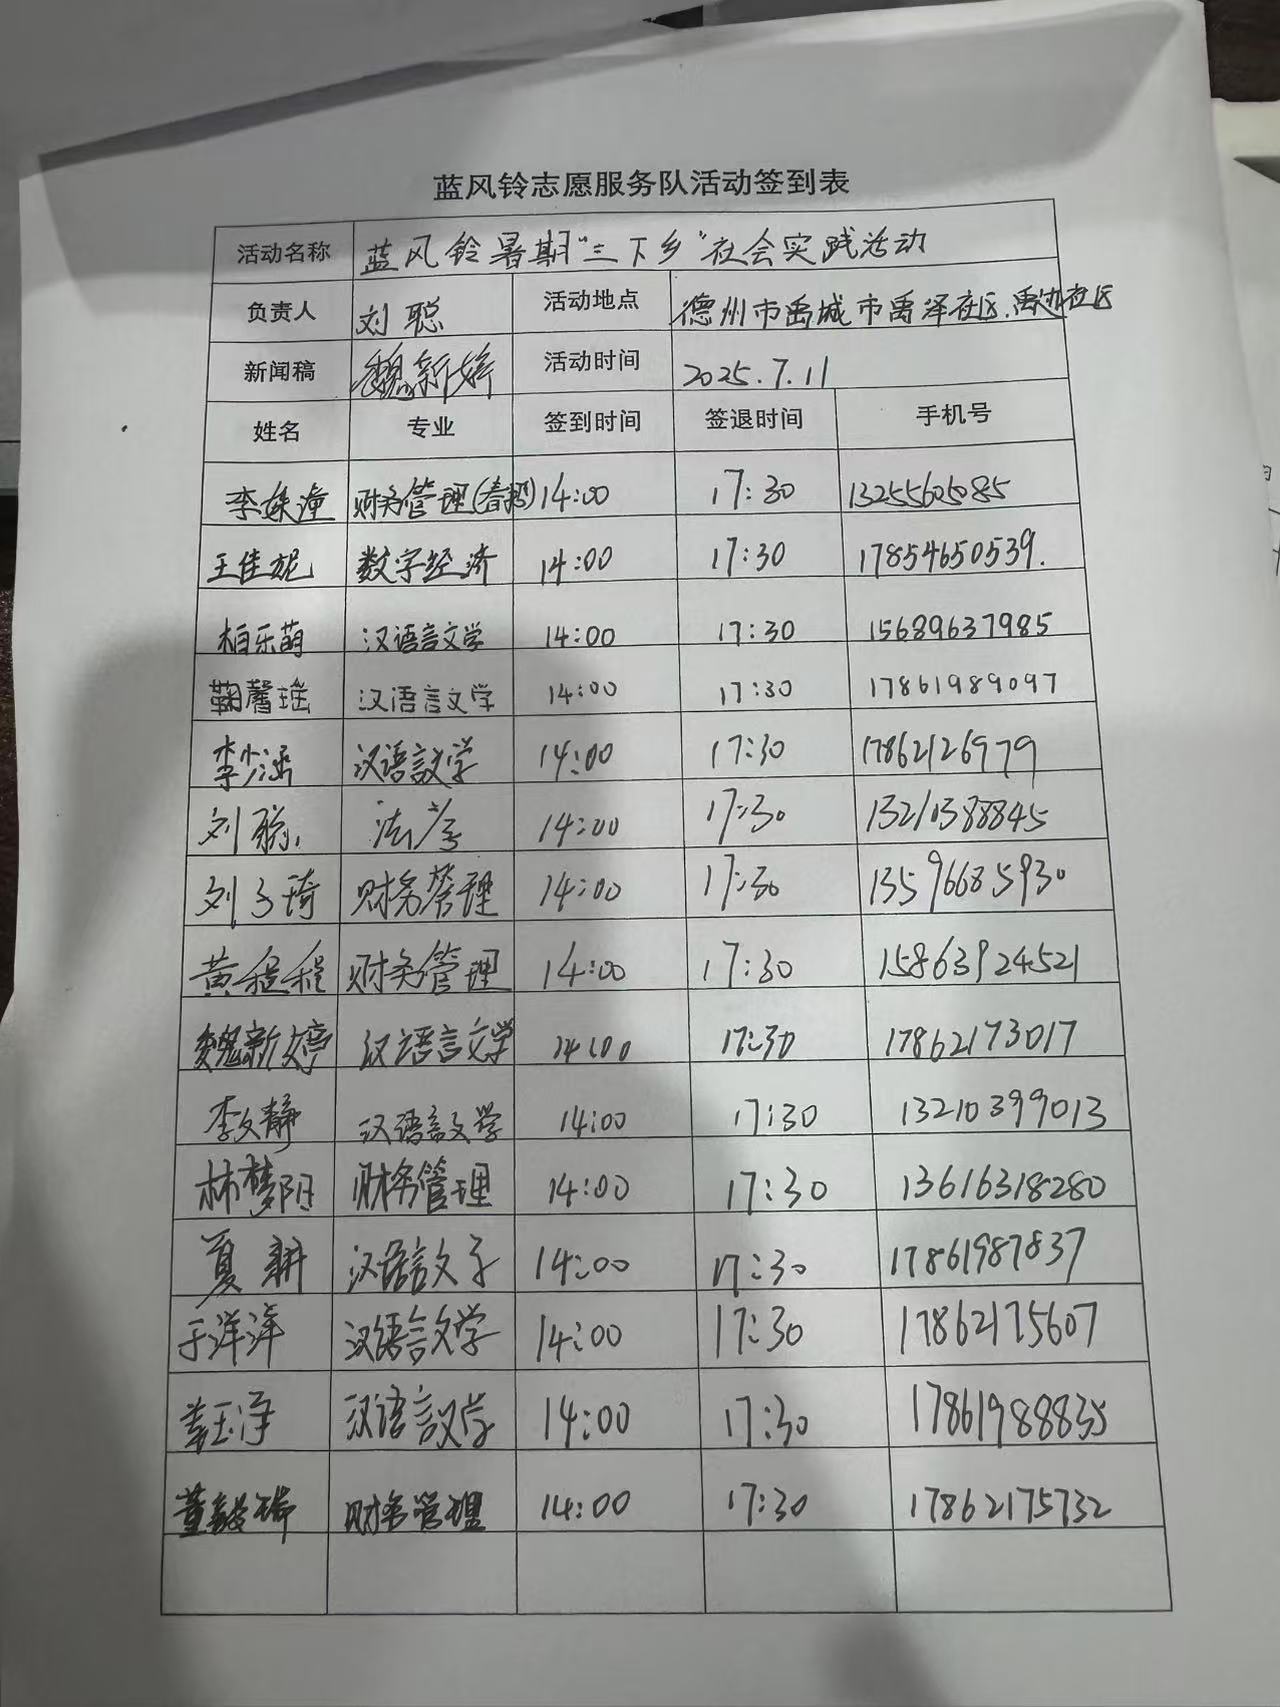 蓝风铃志愿服务队活动签到表
活动名称 蓝风铃暑期“三下乡”社会实践活动
负责人 刘聪 活动地点 德州市禹城市禹泽社区、禹边社区
新闻稿 魏新婷 活动时间 2025.7.11
姓名 专业 签到时间 签退时间 手机号
李姝潼 财务管理(春招) 14:00 17:30 13255605085
王佳妮 数字经济 14:00 17:30 17854650539.
柏乐萌 汉语言文学 14:00 17:30 15689637985
鞠馨瑶 汉语言文学 14:00 17:30 17861989097
李少涵 汉语言文学 14:00 17:30 17862126979
刘聪 法学 14:00 17:30 13210388845
刘子琦 财务管理 14:00 17:30 13596685930
黄程程 财务管理 14:00 17:30 15863924521
魏新婷 汉语言文学 14:00 17:30 17862173017
李文静 汉语言文学 14:00 17:30 13210399013
林梦阳 财务管理 14:00 17:30 13616318280
夏 汉语言文学 14:00 17:30 17861987837
于洋洋 汉语言文学 14:00 17:30 17862175607
姜玉净 汉语言文学 14:00 17:30 17861988835
董 财务管理 14:00 17:30 17862175732